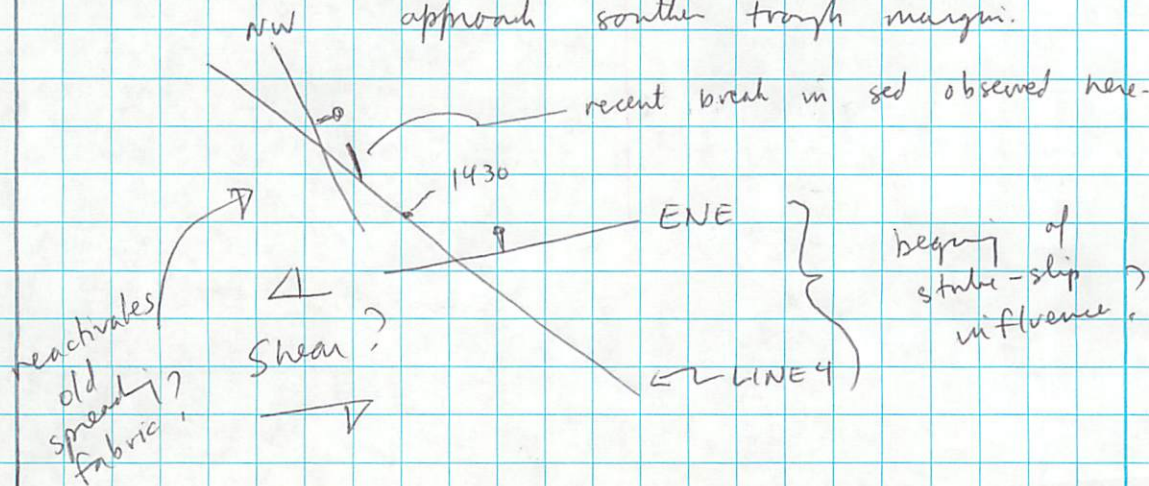 NW
approach souther trough margin.
recent break in sed observed here-
1430
ENE
begining of
strike-slip
influence?
reactivates
old
spreading?
fabric?
Shear?
LINE 4